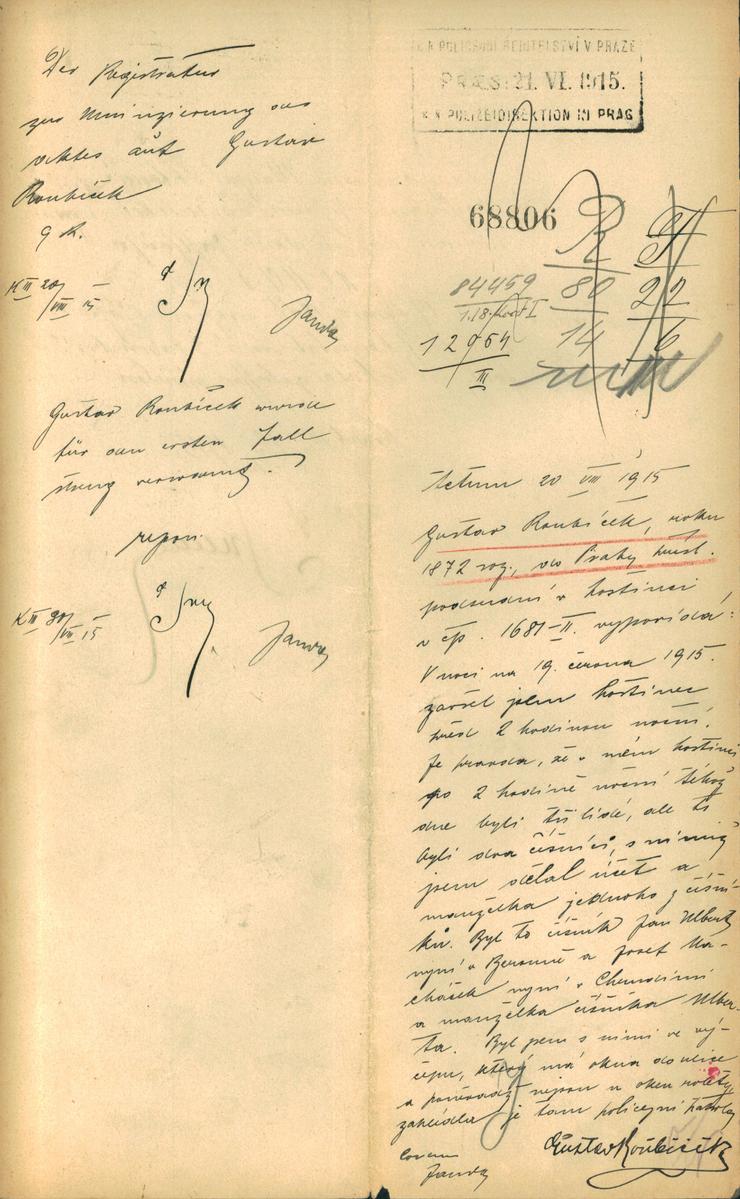 Der Registratur
zur Minizierung des
Aktes auf Gustav
Roubíček
g R.
K III 20/VIII 15
Janda
Gustav Roubíček wurde
für den ersten Fall
streng verwarnt.
repon.
K III 20/VIII 15
Janda
K. K. POLICEJNÍ ŘEDITELSTVÍ V PRAZE
PRÆS: 21. VI. 1915.
K. K. POLIZEIDIREKTION IN PRAG
68806
R T
84459 80 22
12964 14 6
III
Actum 20 VIII 1915
Gustav Roubíček, roku
1872 roz., do Prahy přísl.
podsudní v hostinci
v čp. 1681-II. vypovídá:
V noci na 19. června 1915.
zavřel jsem hostinec
před 2 hodinou noční.
Je pravda, že v mém hostinci
po 2 hodině noční téhož
dne byli tři lidé, ale to
byli dva číšníci, s nimiž
jsem dělal účet a
manželka jednoho z číšní-
ků. Byl to číšník Jan Ulbert
nyní v Berouně a Josef Ma-
cháček nyní v Chrudimi
a manželka číšníka Ulber-
ta. Byl jsem s nimi ve vý-
čepu, který má okna do ulice
a poněvadž nejsou u oken rolety,
zahlédla je tam policejní hlídka
coram
Janda
Gustav Roubíček